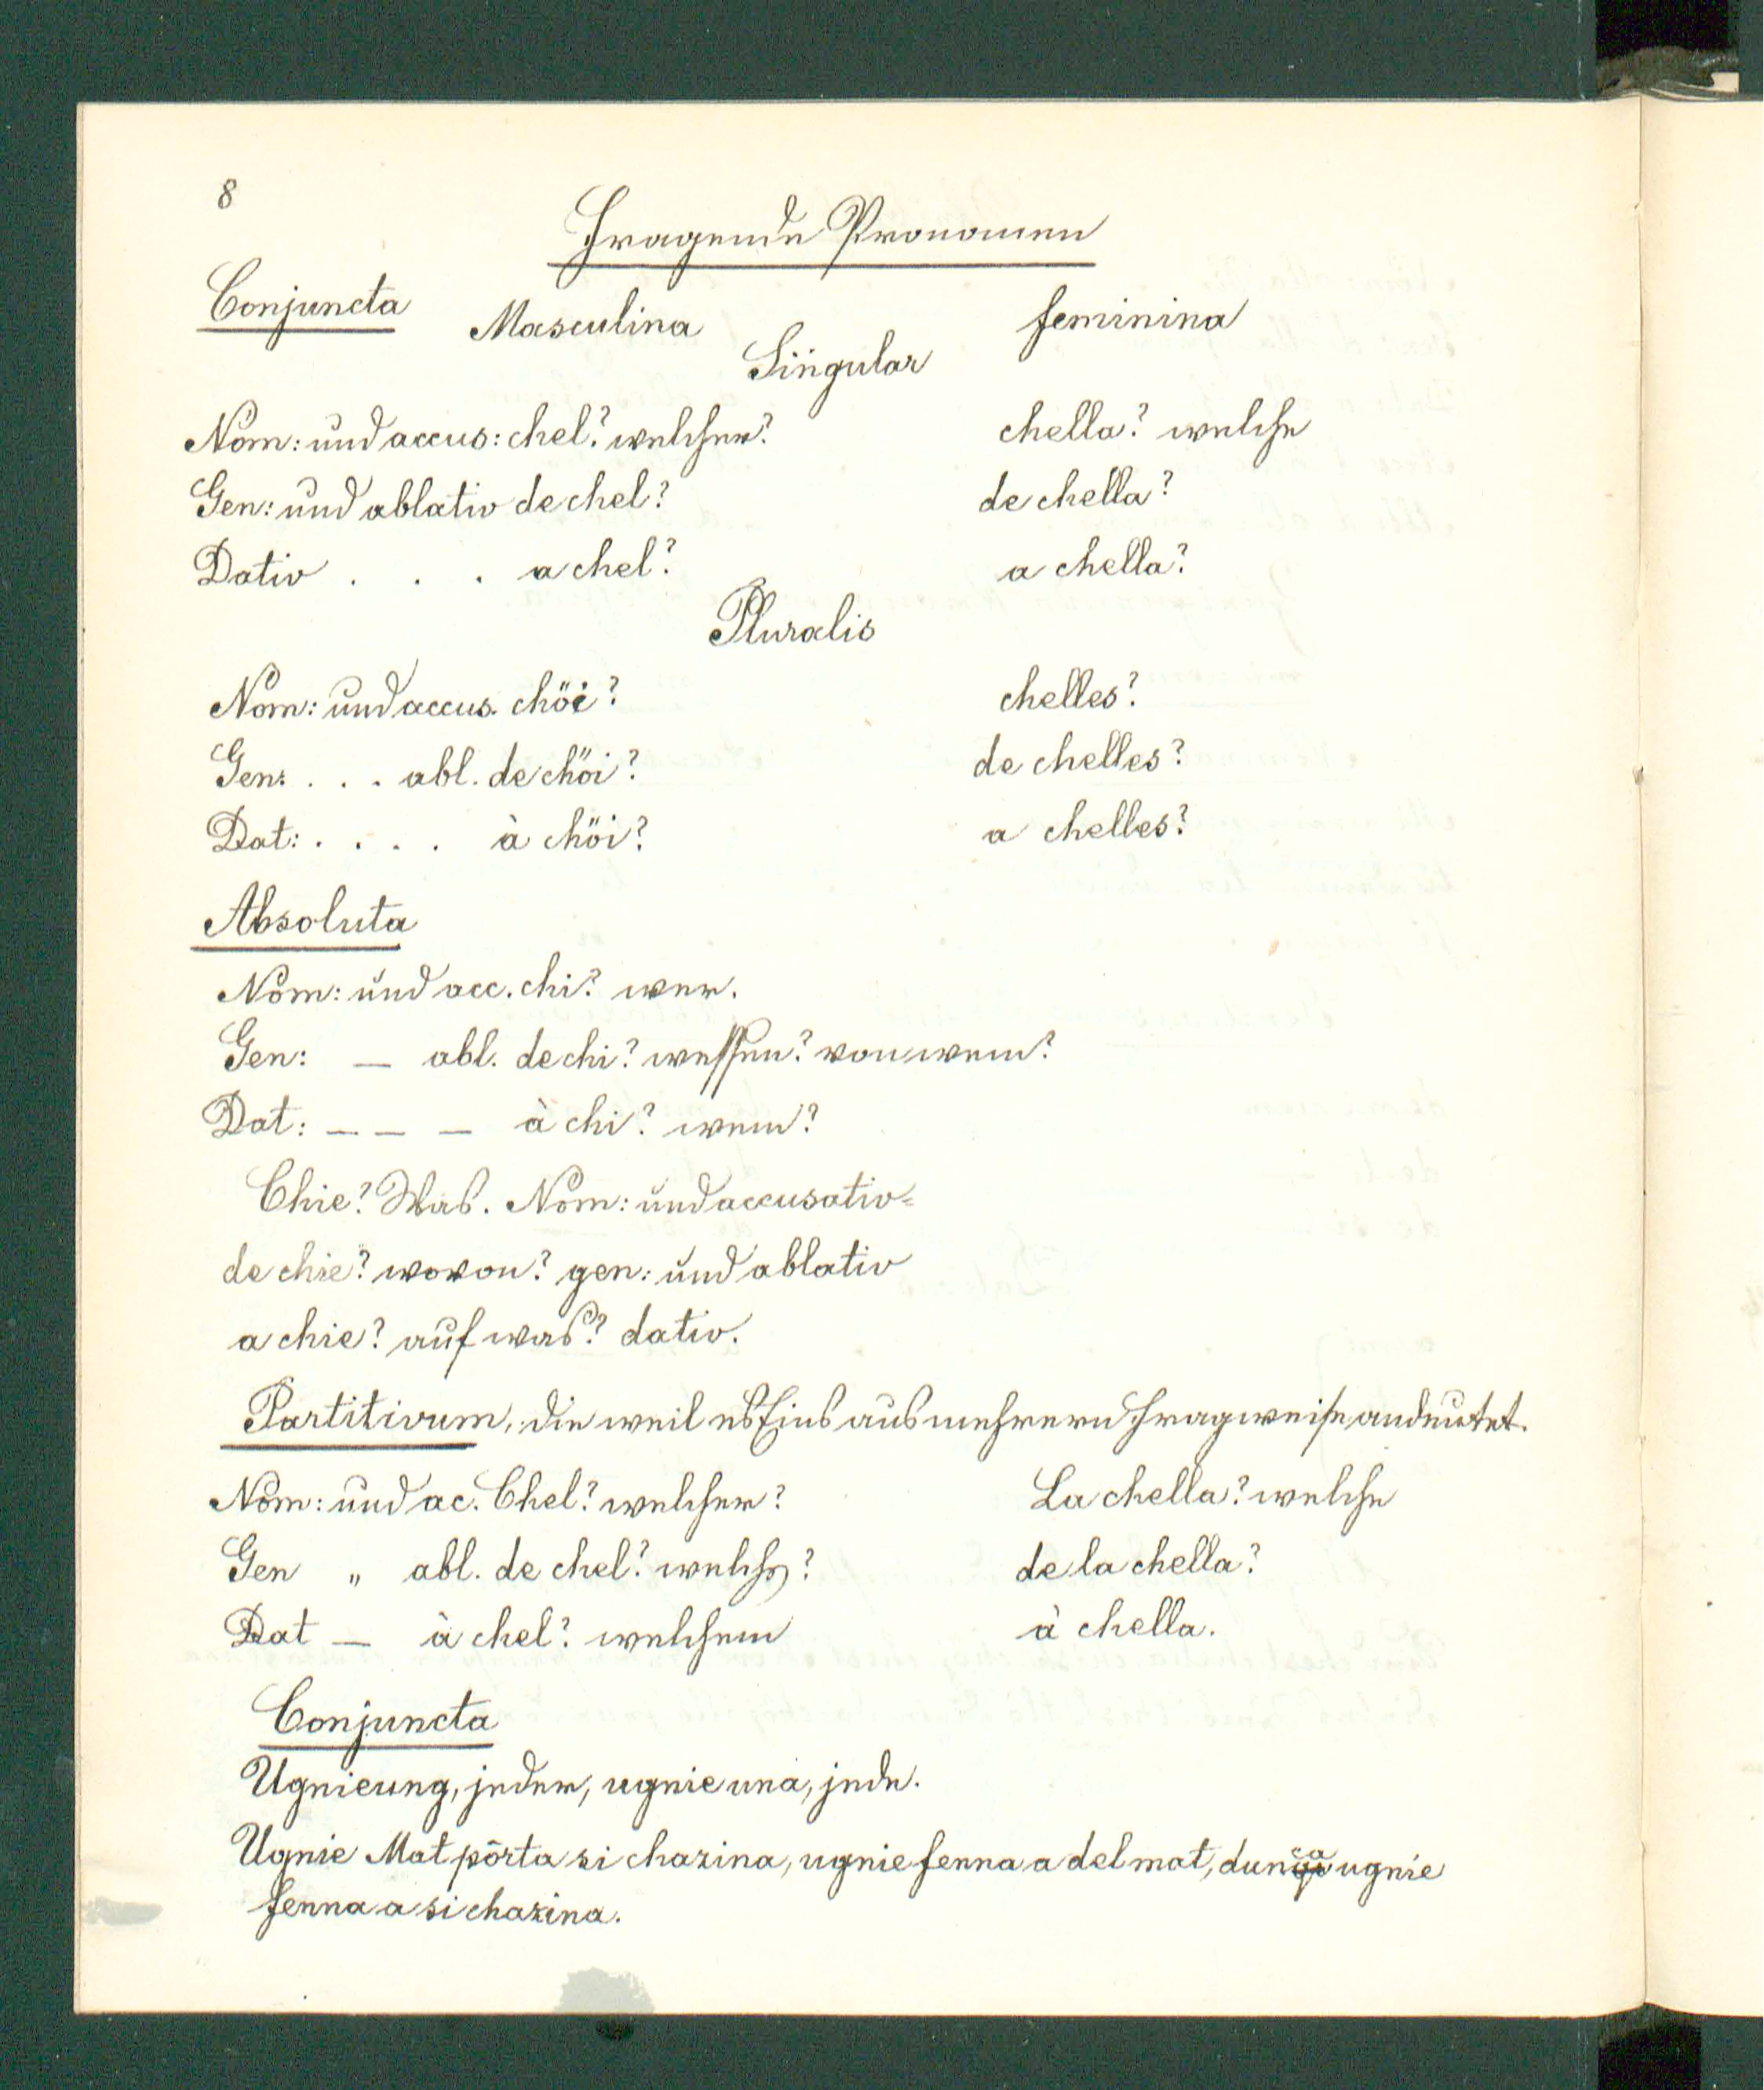 8
Fragende Pronomen
Conjuncta Masculina feminina
Singular
Nom: und accus: chel? welcher? chella? welche
Gen: und ablativ de chel? de chella?
Dativ . . . a chel? a chella?
Pluralis
Nom: und accus. chöi? chelles?
Gen: . . . abl. de chöi? de chelles?
Dat: . . . . à chöi? a chelles?
Absoluta
Nom: und acc. chi? wer.
Gen: — abl. de chi? wessen? von wem?
Dat: — — — à chi? wem?
Chie? Was. Nom: und accusativ=
de chie? wovon? gen: und ablativ
a chie? auf was? dativ.
Partitivum, die weil es Eins aus mehrern Fragweise andeutet.
Nom: und ac. Chel? welcher? La chella? welche
Gen „ abl. de chel? welches? de la chella?
Dat — à chel? welchem à chella.
Conjuncta
Ugnieung, jeder, ugnie una, jede.
Ugnie Mat pôrta si chazina, ugnie fenna a del mat, dunca ugnie
fenna a si chazina.